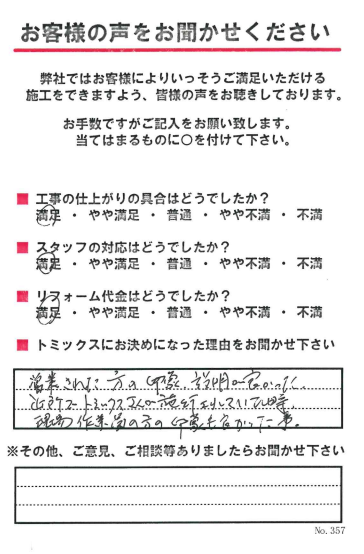 お客様の声をお聞かせください
弊社ではお客様によりいっそうご満足いただける
施工をできますよう、皆様の声をお聴きしております。
お手数ですがご記入をお願い致します。
当てはまるものに○を付けて下さい。
■ 工事の仕上がりの具合はどうでしたか?
満足 ・ やや満足 ・ 普通 ・ やや不満 ・ 不満
■ スタッフの対応はどうでしたか?
満足 ・ やや満足 ・ 普通 ・ やや不満 ・ 不満
■ リフォーム代金はどうでしたか?
満足 ・ やや満足 ・ 普通 ・ やや不満 ・ 不満
■ トミックスにお決めになった理由をお聞かせ下さい
営業された方の印象、説明が良かった。
近所でトミックスさんが施工していた時、
現場作業員の方の印象も良かった事。
※その他、ご意見、ご相談等ありましたらお聞かせ下さい
No. 357